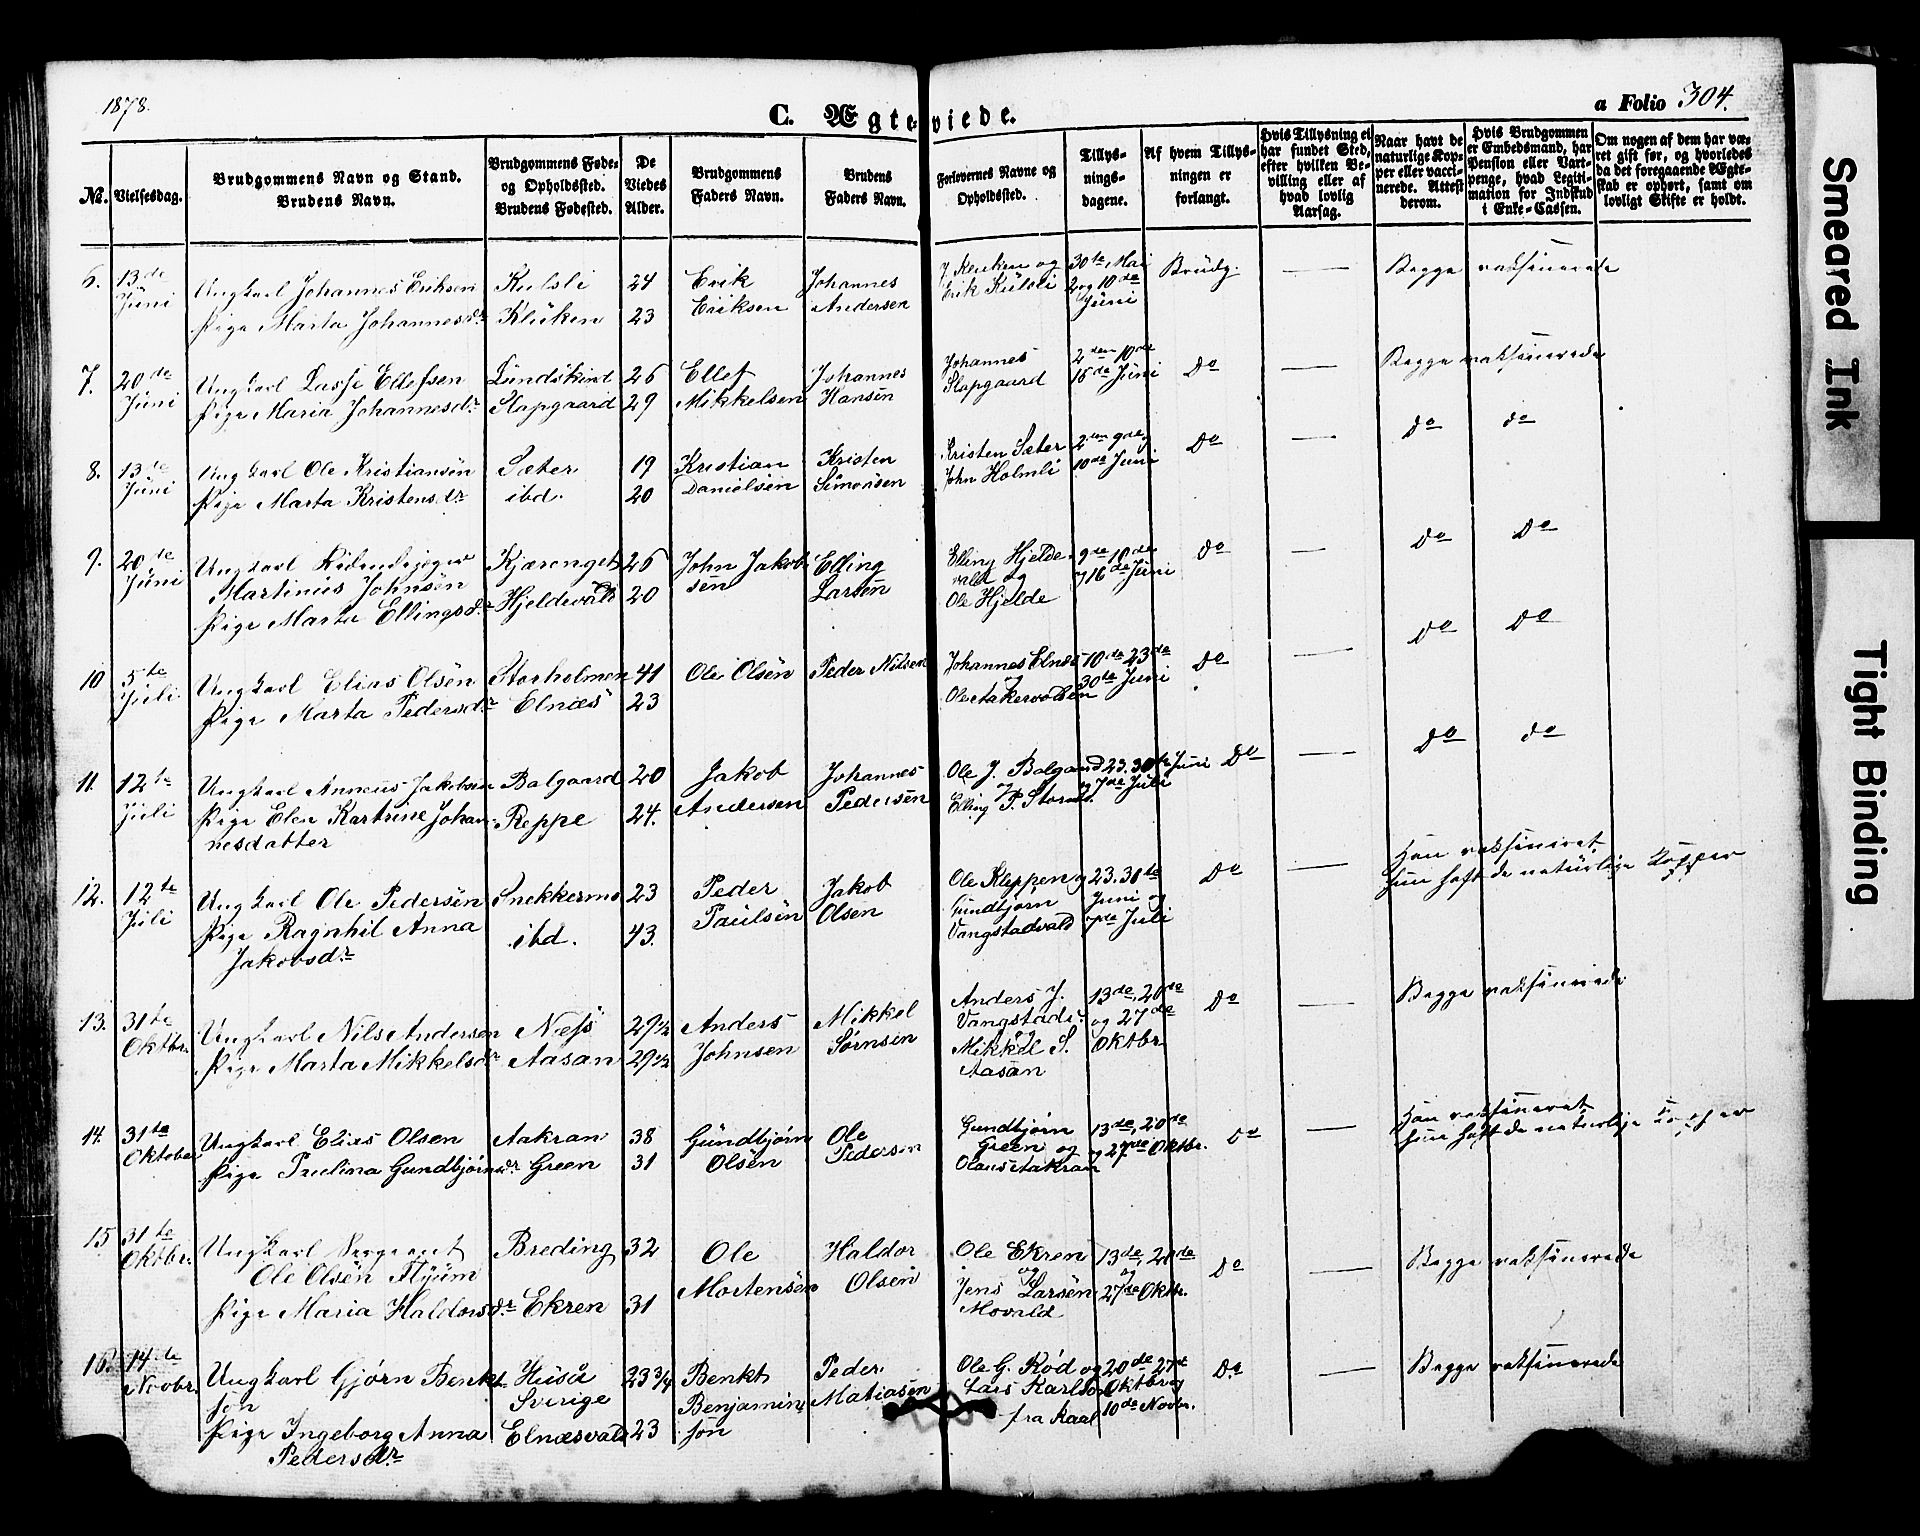 1878.
C. Ægteviede.
a Folio 304.
No.
Vielsesdag.
Brudgommens Navn og Stand.
Brudens Navn.
Brudgommens Føde-
og Opholdssted.
Brudens Fødested.
De
Viedes
Alder.
Brudgommens
Faders Navn.
Brudens
Faders Navn.
Forlovernes Navne og
Opholdssted.
Tillys-
nings-
dagene.
Af hvem Tillys-
ningen er
forlangt.
Hvis Tillysning ei
har fundet Sted,
efter hvilken Be-
villing eller af
hvad lovlig
Aarsag.
Naar havt de
naturlige Kop-
per eller vacci-
nerede. Attest
derom.
Hvis Brudgommen
er Embedsmand, har
Pension eller Vart-
penge, hvad Legiti-
mation for Indskud
i Enke-Cassen.
Om nogen af dem har væ-
ret gift før, og hvorledes
da det foregaaende Ægte-
skab er ophørt, samt om
lovligt Skifte er holdt.
6. 13de Ungkarl Johannes Eriksen Kulsli 24 Erik Johannes og 30te Mai Brudg. — Begge vaksinerede
Juni Pige Marta Johannesdr Klüken 23 Eriksen Andersen Erik Külsli 2 og 10de
Juni
7. 20de Ungkarl Lasse Ellefsen Lundskind 26 Ellef Johannes Johannes 2den 10de Do — Begge vaksinerede
Juni Pige Maria Johannesdr Slapgaard 29 Mikkelsen Hansen Slapgaard 16de Juni
8. 13de Ungkarl Ole Kristiansen Sæter 19 Kristian Kristen Kristen Sæter 2den 9de Do — do do
Juni Pige Marta Kristensdr ibd. 20 Danielsen Simonsen John Holmli 10de Juni
9. 20de Ungkarl Kjærenget 26 John Jakob Elling Elling Hjelde- 9de 10de Do — Do Do
Juni Martinus Johnsen sen Larsen vald og 16de Juni
Pige Marta Ellingsdr Hjeldevald 20 Ole Hjelde
10 5te Ungkarl Elias Olsen Storholmen 41 Ole Olsen Peder Nilsen Johannes Elnes 10de 23de Do — Do Do
Juli Pige Marta Pedersdr Elnæs 23 30te Juni
11. 12te Ungkarl Anneus Jakobsen Balgaard 20 Jakob Johannes Ole J. Balgaard 23. 30te Juni Do — Do do
Juli Pige Elen Kartrine Johan- Reppe 24. Andersen Pedersen og Elling P. 7de Juli
nesdatter
12. 12te Ungkarl Ole Pedersen Snekkermo 23 Peder Jakob Ole Kleppen 23. 30te Do — Han vaksineret
Juli Pige Ragnhil Anna ibd. 43. Paulsen Olsen Gundbjørn Juni og Hun haft de naturlige Kopper
Jakobsdr Vangstadvald 7de Juli
13. 31te Ungkarl Nils Andersen Næss 27½ Anders Mikkel Anders J. 13de, 20de Do — Begge vaksinerede
Oktbr. Pige Marta Mikkelsdr Aasan 29½ Johnsen Sørnsen Vangstad og 27de
Mikkel S. Oktbr
Aasan
14. 31te Ungkarl Elias Olsen Aakran 38 Gundbjørn Ole Gundbjørn 13de, 20de Do — Han vaksineret
Oktober Pige Paulina Gundbjørnsdr Green 31 Olsen Pedersen Green og 27de Oktbr. Hun haft de naturlige Kopper
Olaus Aakran
15 31te Ungkarl Sergeant Breding 32 Ole Haldor Ole Ekren 13de, 20de Do — Begge vaksinerede
Oktbr. Ole Olsen Flyum Mortensen Olsen og og
Pige Maria Haldorsdr Ekren 31 Jens Larsen 27de Oktbr.
Movald
16. 14de Ungkarl Gjørn Benkt- Huså 23¾ Benkt Peder Ole G. Rød og 20de 27de Do — Begge vaksinerede
Novbr. son Sverige Benjamin- Matiasen Lars Karlson Oktbr og
Pige Ingeborg Anna Elnæsvald 23 son fra Kaal 10de Novbr.
Pedersdr
Smeared Ink
Tight Binding